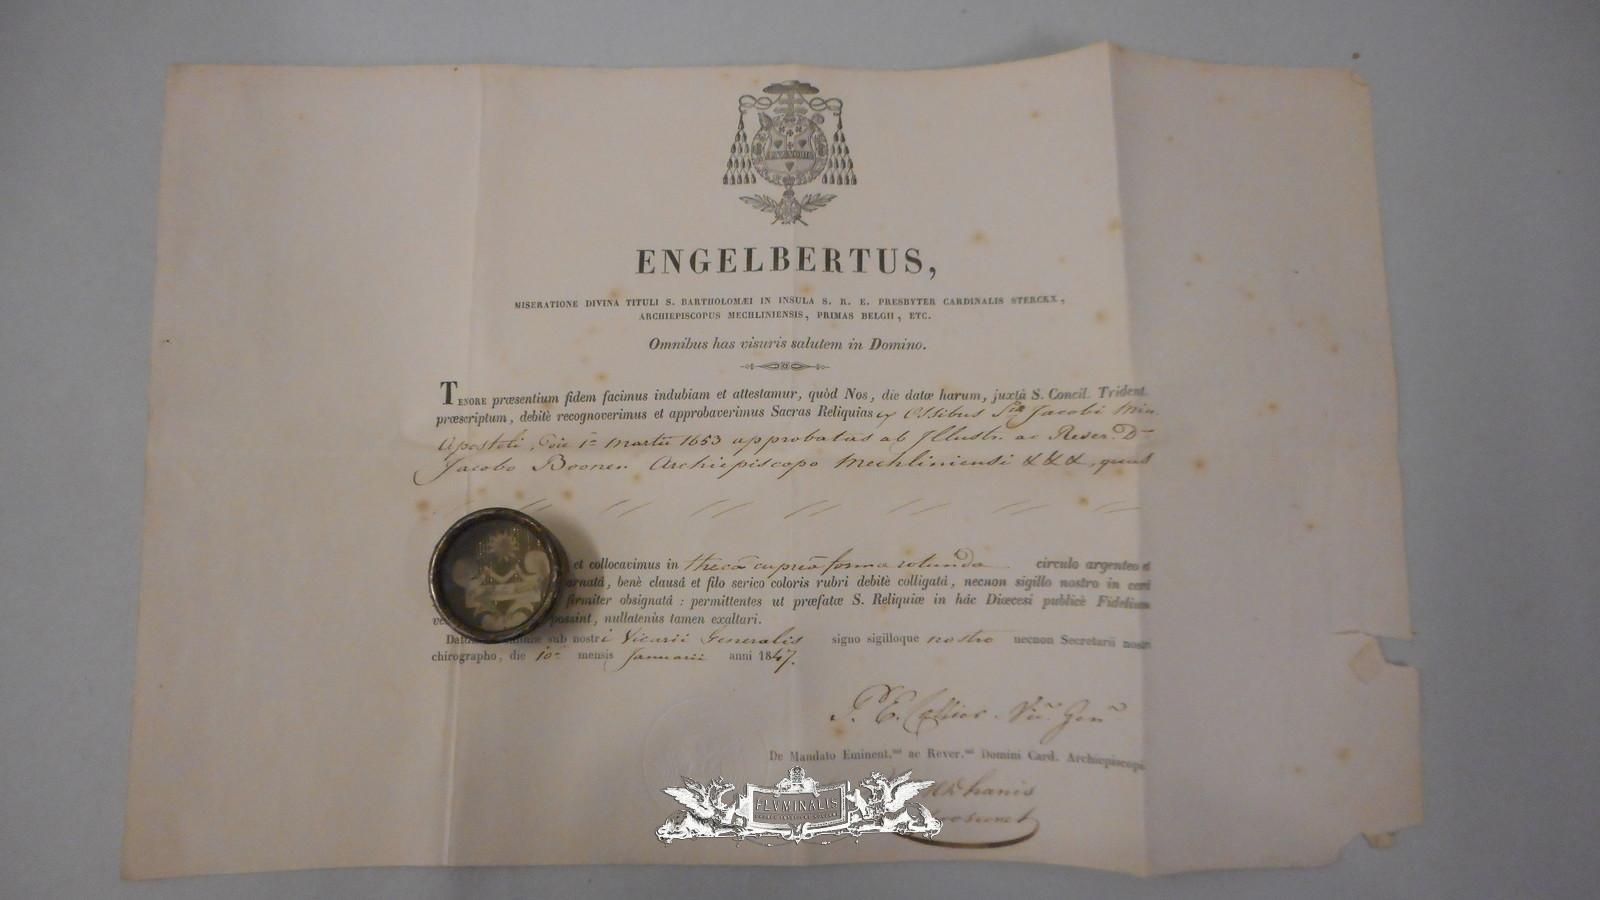 PAX VOBIS
ENGELBERTUS,
MISERATIONE DIVINA TITULI S. BARTHOLOMÆI IN INSULA S. R. E. PRESBYTER CARDINALIS STERCKX,
ARCHIEPISCOPUS MECHLINIENSIS, PRIMAS BELGII, ETC.
Omnibus has visuris salutem in Domino.
TENORE præsentium fidem facimus indubiam et attestamur, quòd Nos, die datæ harum, juxtà S. Concil. Trident.
præscriptum, debitè recognoverimus et approbaverimus Sacras Reliquias ex Ossibus Sti Jacobi Min.
Apostoli, die 1a Martii 1653 approbatas ab Illustr. ac Rever. Dno
Jacobo Boonen Archiepiscopo Mechliniensi &&&, quas
et collocavimus in thecâ cupreâ forma rotunda circulo argenteo
ornatá, benè clausá et filo serico coloris rubri debitè colligatá, necnon sigillo nostro in cerâ
firmiter obsignatá : permittentes ut præfatæ S. Reliquiæ in hác Diœcesi publicè Fidelium
possint, nullatenùs tamen exaltari.
sub nostri Vicarii Generalis signo sigilloque nostro necnon Secretarii nostri
chirographo, die 10a mensis Januarii anni 1847.
Vic. Gen.
De Mandato Eminent.mi ac Rever.mi Domini Card. Archiepiscopi.
FLVMINALIS